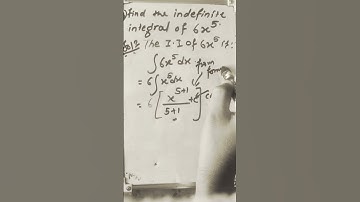 find the indefinite
integral of 6x⁵.
The I.I of 6x⁵ is
∫6x⁵dx from
= 6∫x⁵dx
= 6[x⁵⁺¹/5+1 + c]